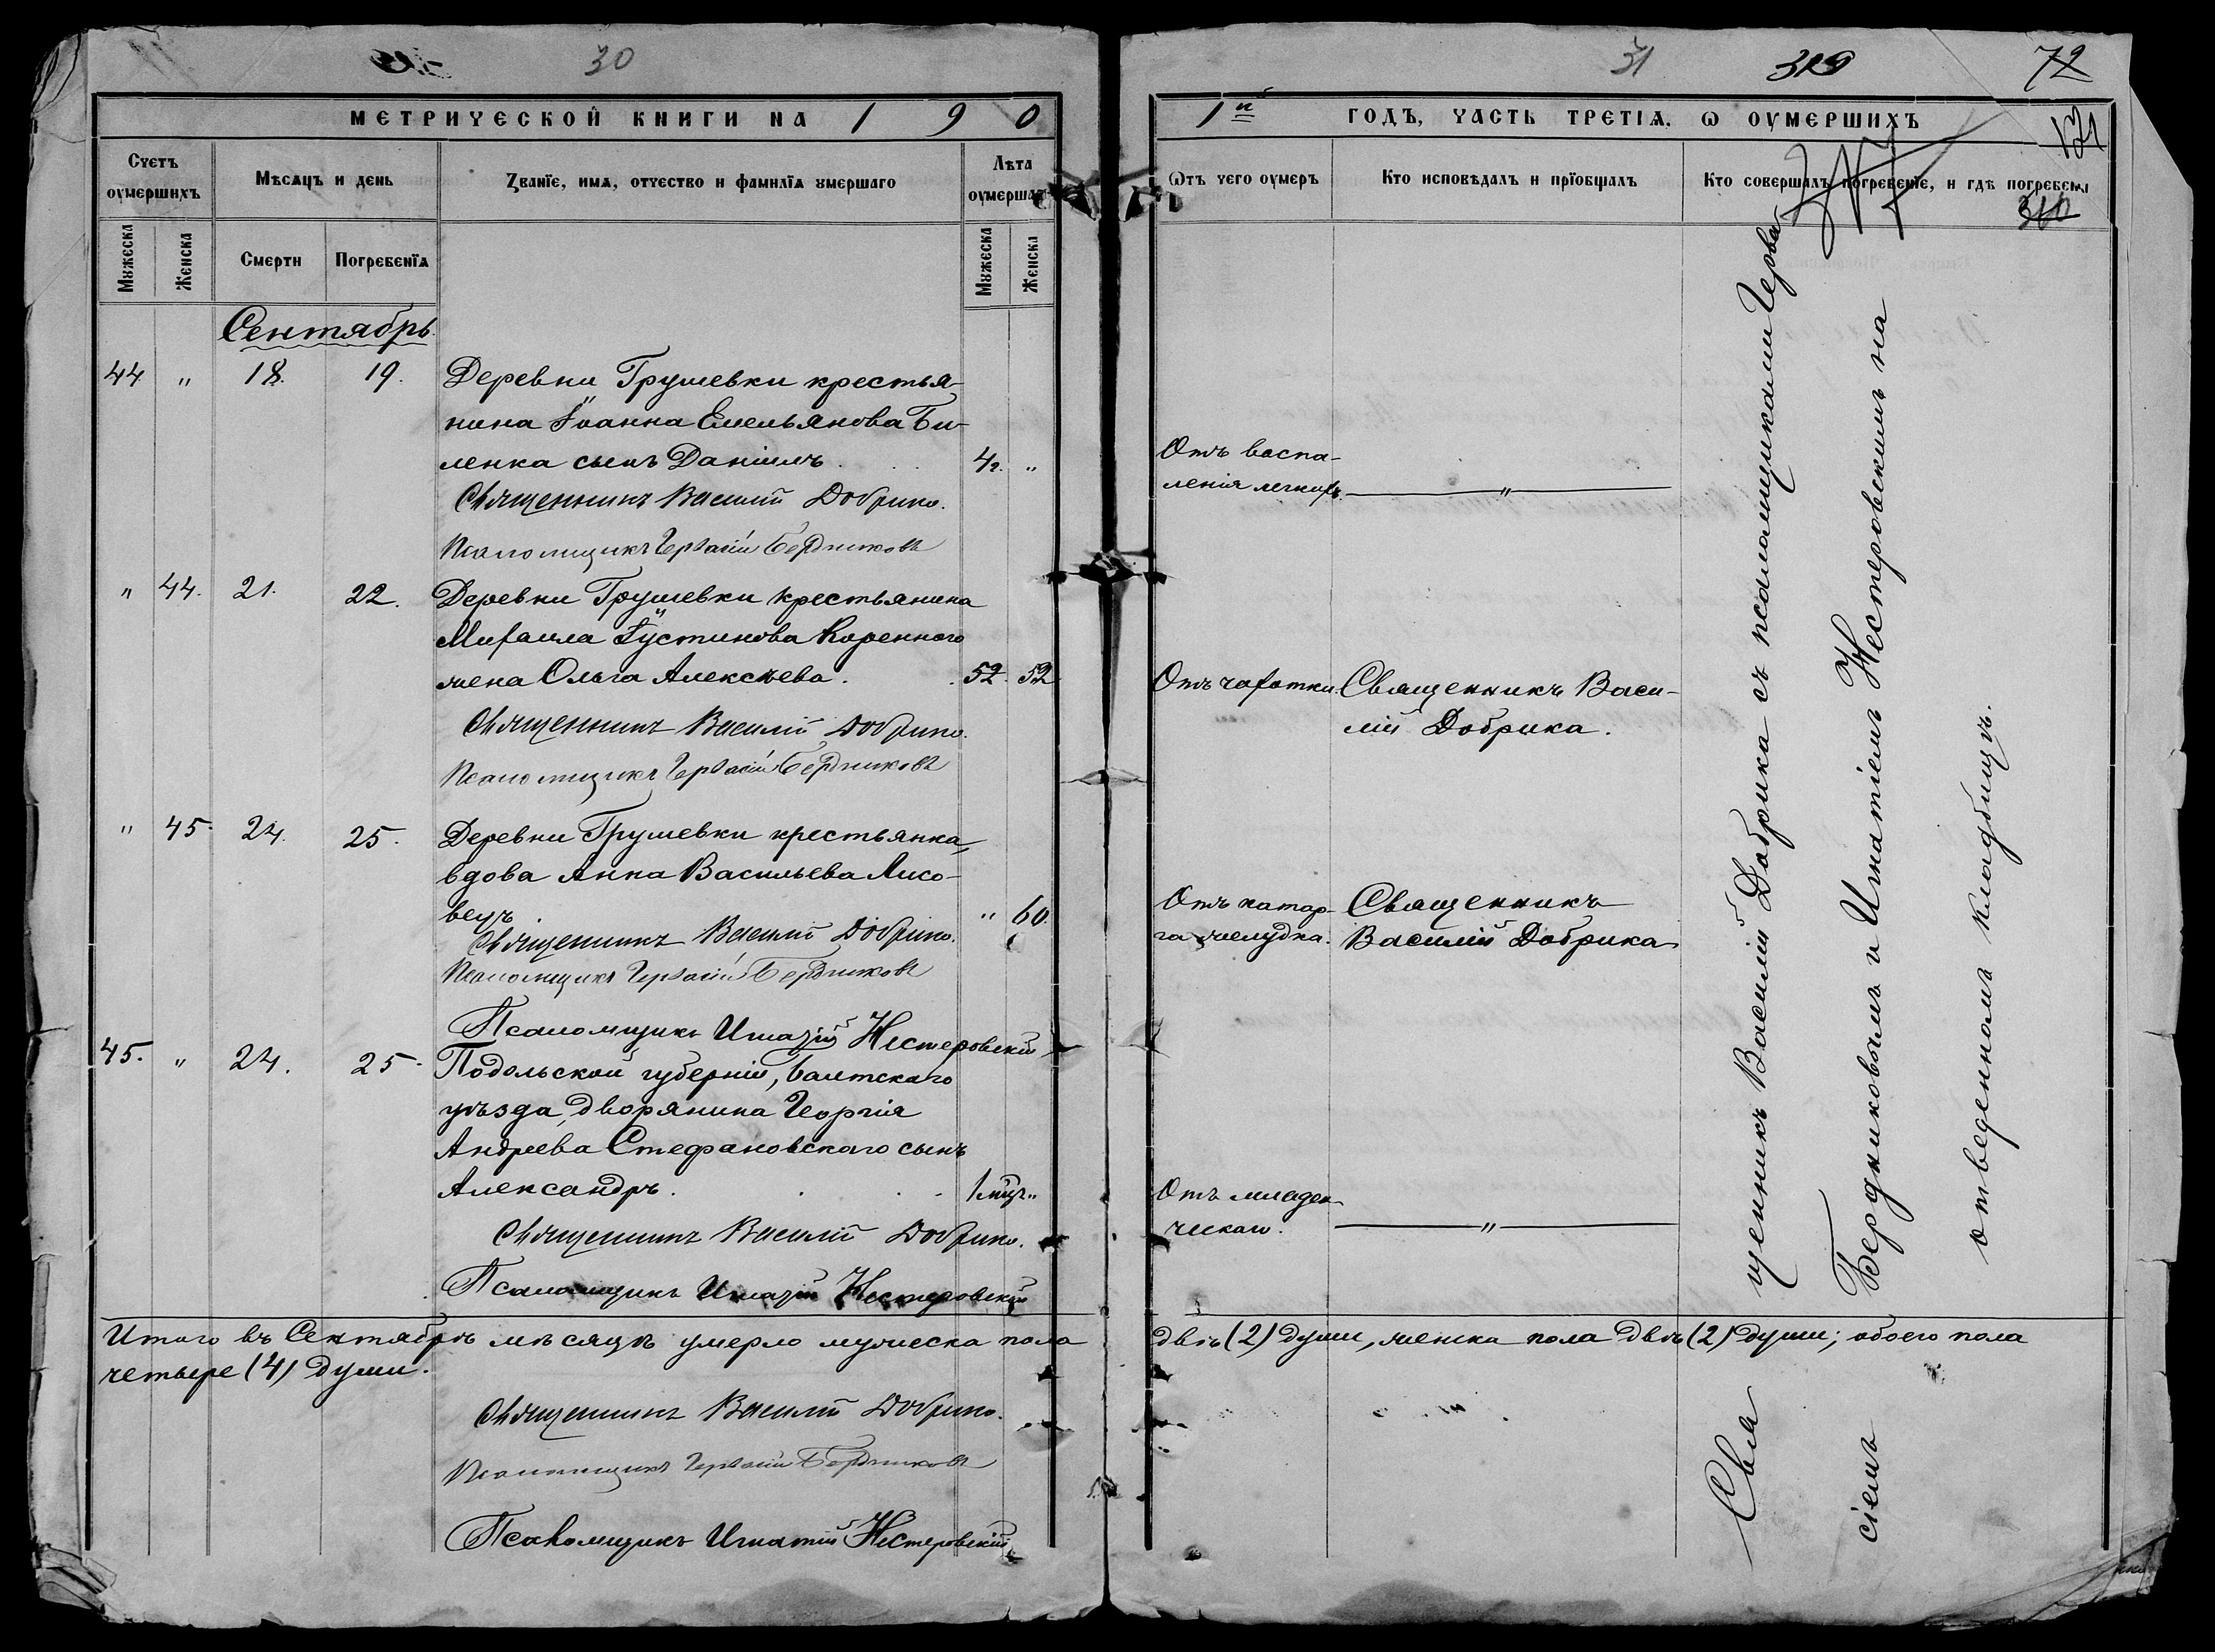 30
МЕТРИЧЕСКОЙ КНИГИ НА 1 9 0
Счетъ оумершихъ
Мѣсяцъ и день
Званїе, имя, отчество и фамилїя умершаго
Лѣта оумершаго
Мужеска
Женска
Смерти
Погребенїя
Мужеска
Женска
Сентябрь.
44 " 18. 19. Деревни Грушевки крестья-
нина Іоанна Емельянова Би-
ленка сынъ Даніилъ. 4г. "
Священникъ Василій Добрика.
Псаломщикъ Гервасій Бердниковъ
" 44. 21. 22. Деревни Грушевки крестьянина
Михаила Іустинова Коренного
жена Ольга Алексѣева. 52. 52
Священникъ Василій Добрика.
Псаломщикъ Гервасій Бердниковъ
" 45. 24. 25. Деревни Грушевки крестьянка,
вдова Анна Васильева Лисо-
вецъ. " 60.
Священникъ Василій Добрика.
Псаломщикъ Гервасій Бердниковъ
Псаломщикъ Игнатій Нестеровскій
45. " 24. 25. Подольской губерніи, Балтскаго
уѣзда, дворянина Георгія
Андреева Стефановскаго сынъ
Александръ. 1 мѣс. "
Священникъ Василій Добрика.
Псаломщикъ Игнатій Нестеровскій
Итого въ Сентябрѣ мѣсяцѣ умерло мужеска пола
четыре (4) души.
Священникъ Василій Добрика.
Псаломщикъ Гервасій Бердниковъ
Псаломщикъ Игнатій Нестеровскій
31 72
1й ГОДЪ, ЧАСТЬ ТРЕТІЯ. Ѡ ОУМЕРШИХЪ
Ѡтъ чего оумеръ
Кто исповѣдалъ и прїобщалъ
Кто совершалъ погребенїе, и гдѣ погребены
310
Отъ воспа-
ленія легкихъ. "
Отъ чахотки. Священникъ Васи-
лій Добрика.
Отъ катар- Священникъ
га желудка. Василій Добрика
Отъ младен-
ческаго. "
Священникъ Василій Добрика съ псаломщиками Герва
сіемъ Бердниковымъ и Игнатіемъ Нестеровскимъ на
отведенномъ кладбищѣ.
двѣ (2) души, женска пола двѣ (2) души; обоего пола